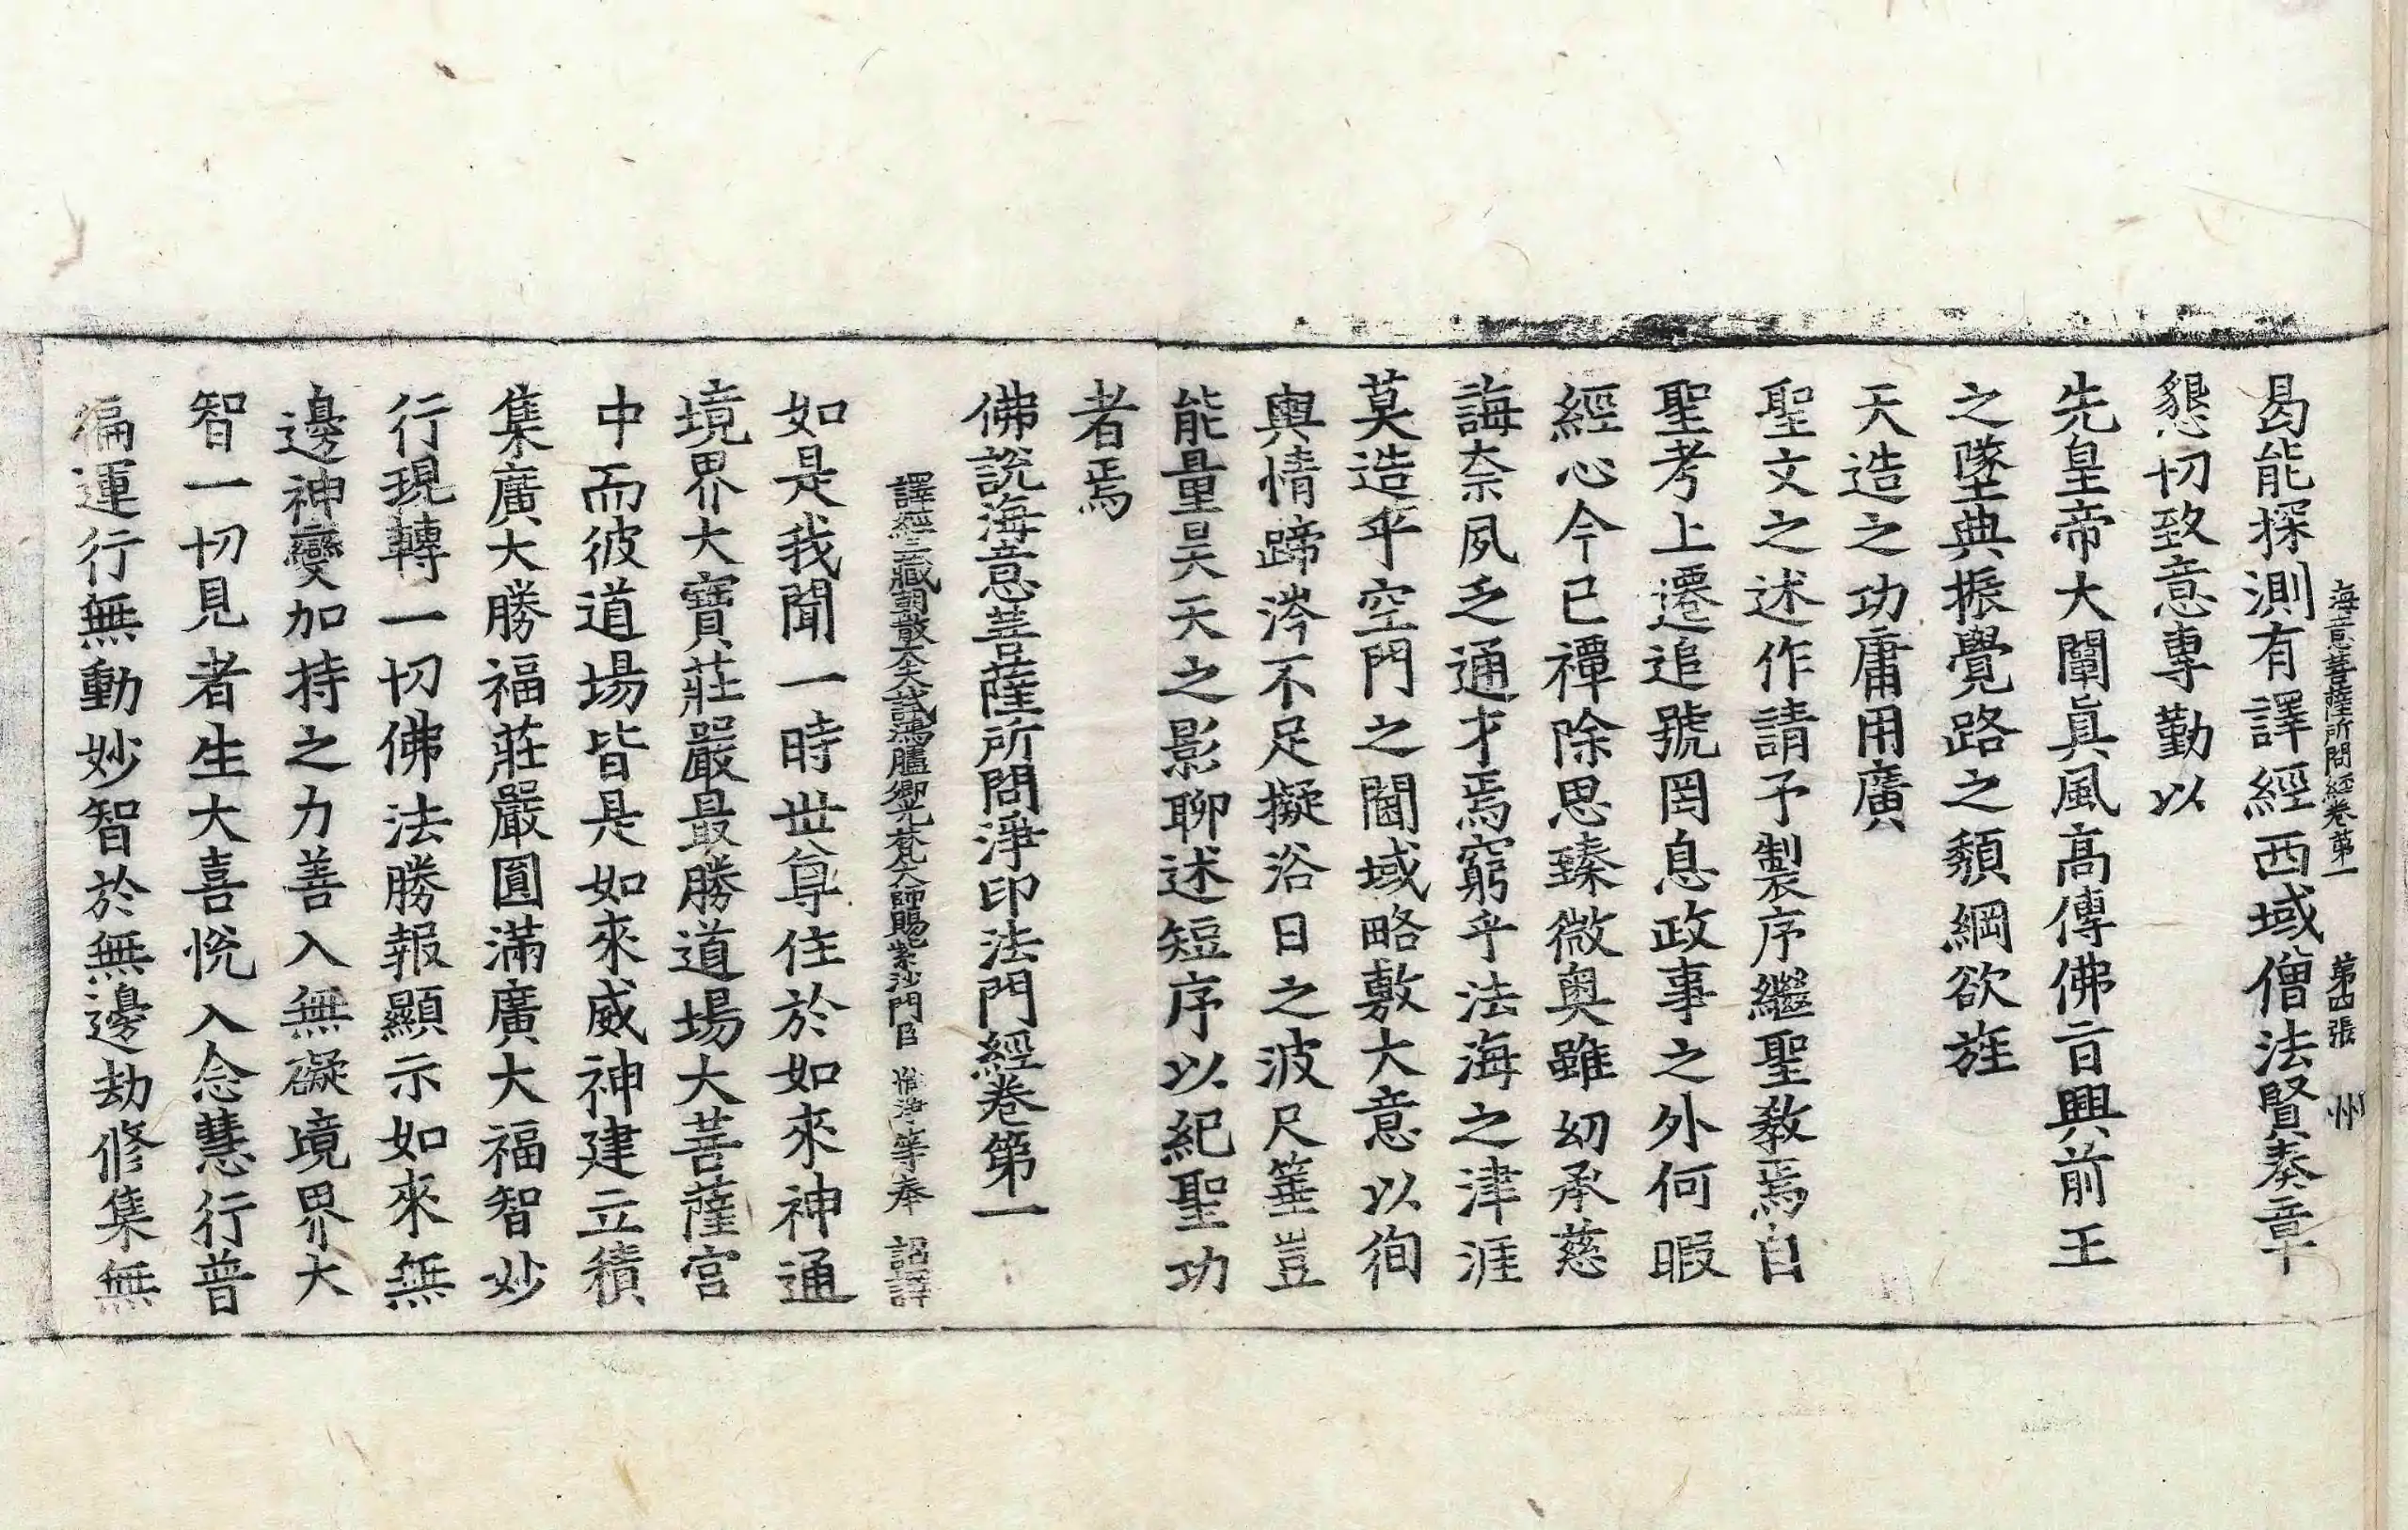 海意菩薩所問經卷第一 第四張 州
曷能探測有譯經西域僧法賢奏章
懇切致意專勤以
先皇帝大闡眞風高傳佛旨興前王
之墜典振覺路之頹綱欲旌
天造之功庸用廣
聖文之述作請予製序繼聖敎焉自
聖考上遷追號罔息政事之外何暇
經心今已禫除思臻微奧雖幼承慈
誨奈夙乏通才焉窮乎法海之津涯
莫造乎空門之閫域略敷大意以徇
輿情蹄涔不足擬浴日之波尺箠豈
能量昊天之影聊述短序以紀聖功
者焉
佛說海意菩薩所問淨印法門經卷第一
譯經三藏朝散大夫試鴻臚卿光梵大師賜紫沙門臣 惟淨等奉 詔譯
如是我聞一時世尊住於如來神通
境界大寶莊嚴最勝道場大菩薩宮
中而彼道場皆是如來威神建立積
集廣大勝福莊嚴圓滿廣大福智妙
行現轉一切佛法勝報顯示如來無
邊神變加持之力善入無礙境界大
智一切見者生大喜悅入念慧行普
徧運行無動妙智於無邊劫修集無